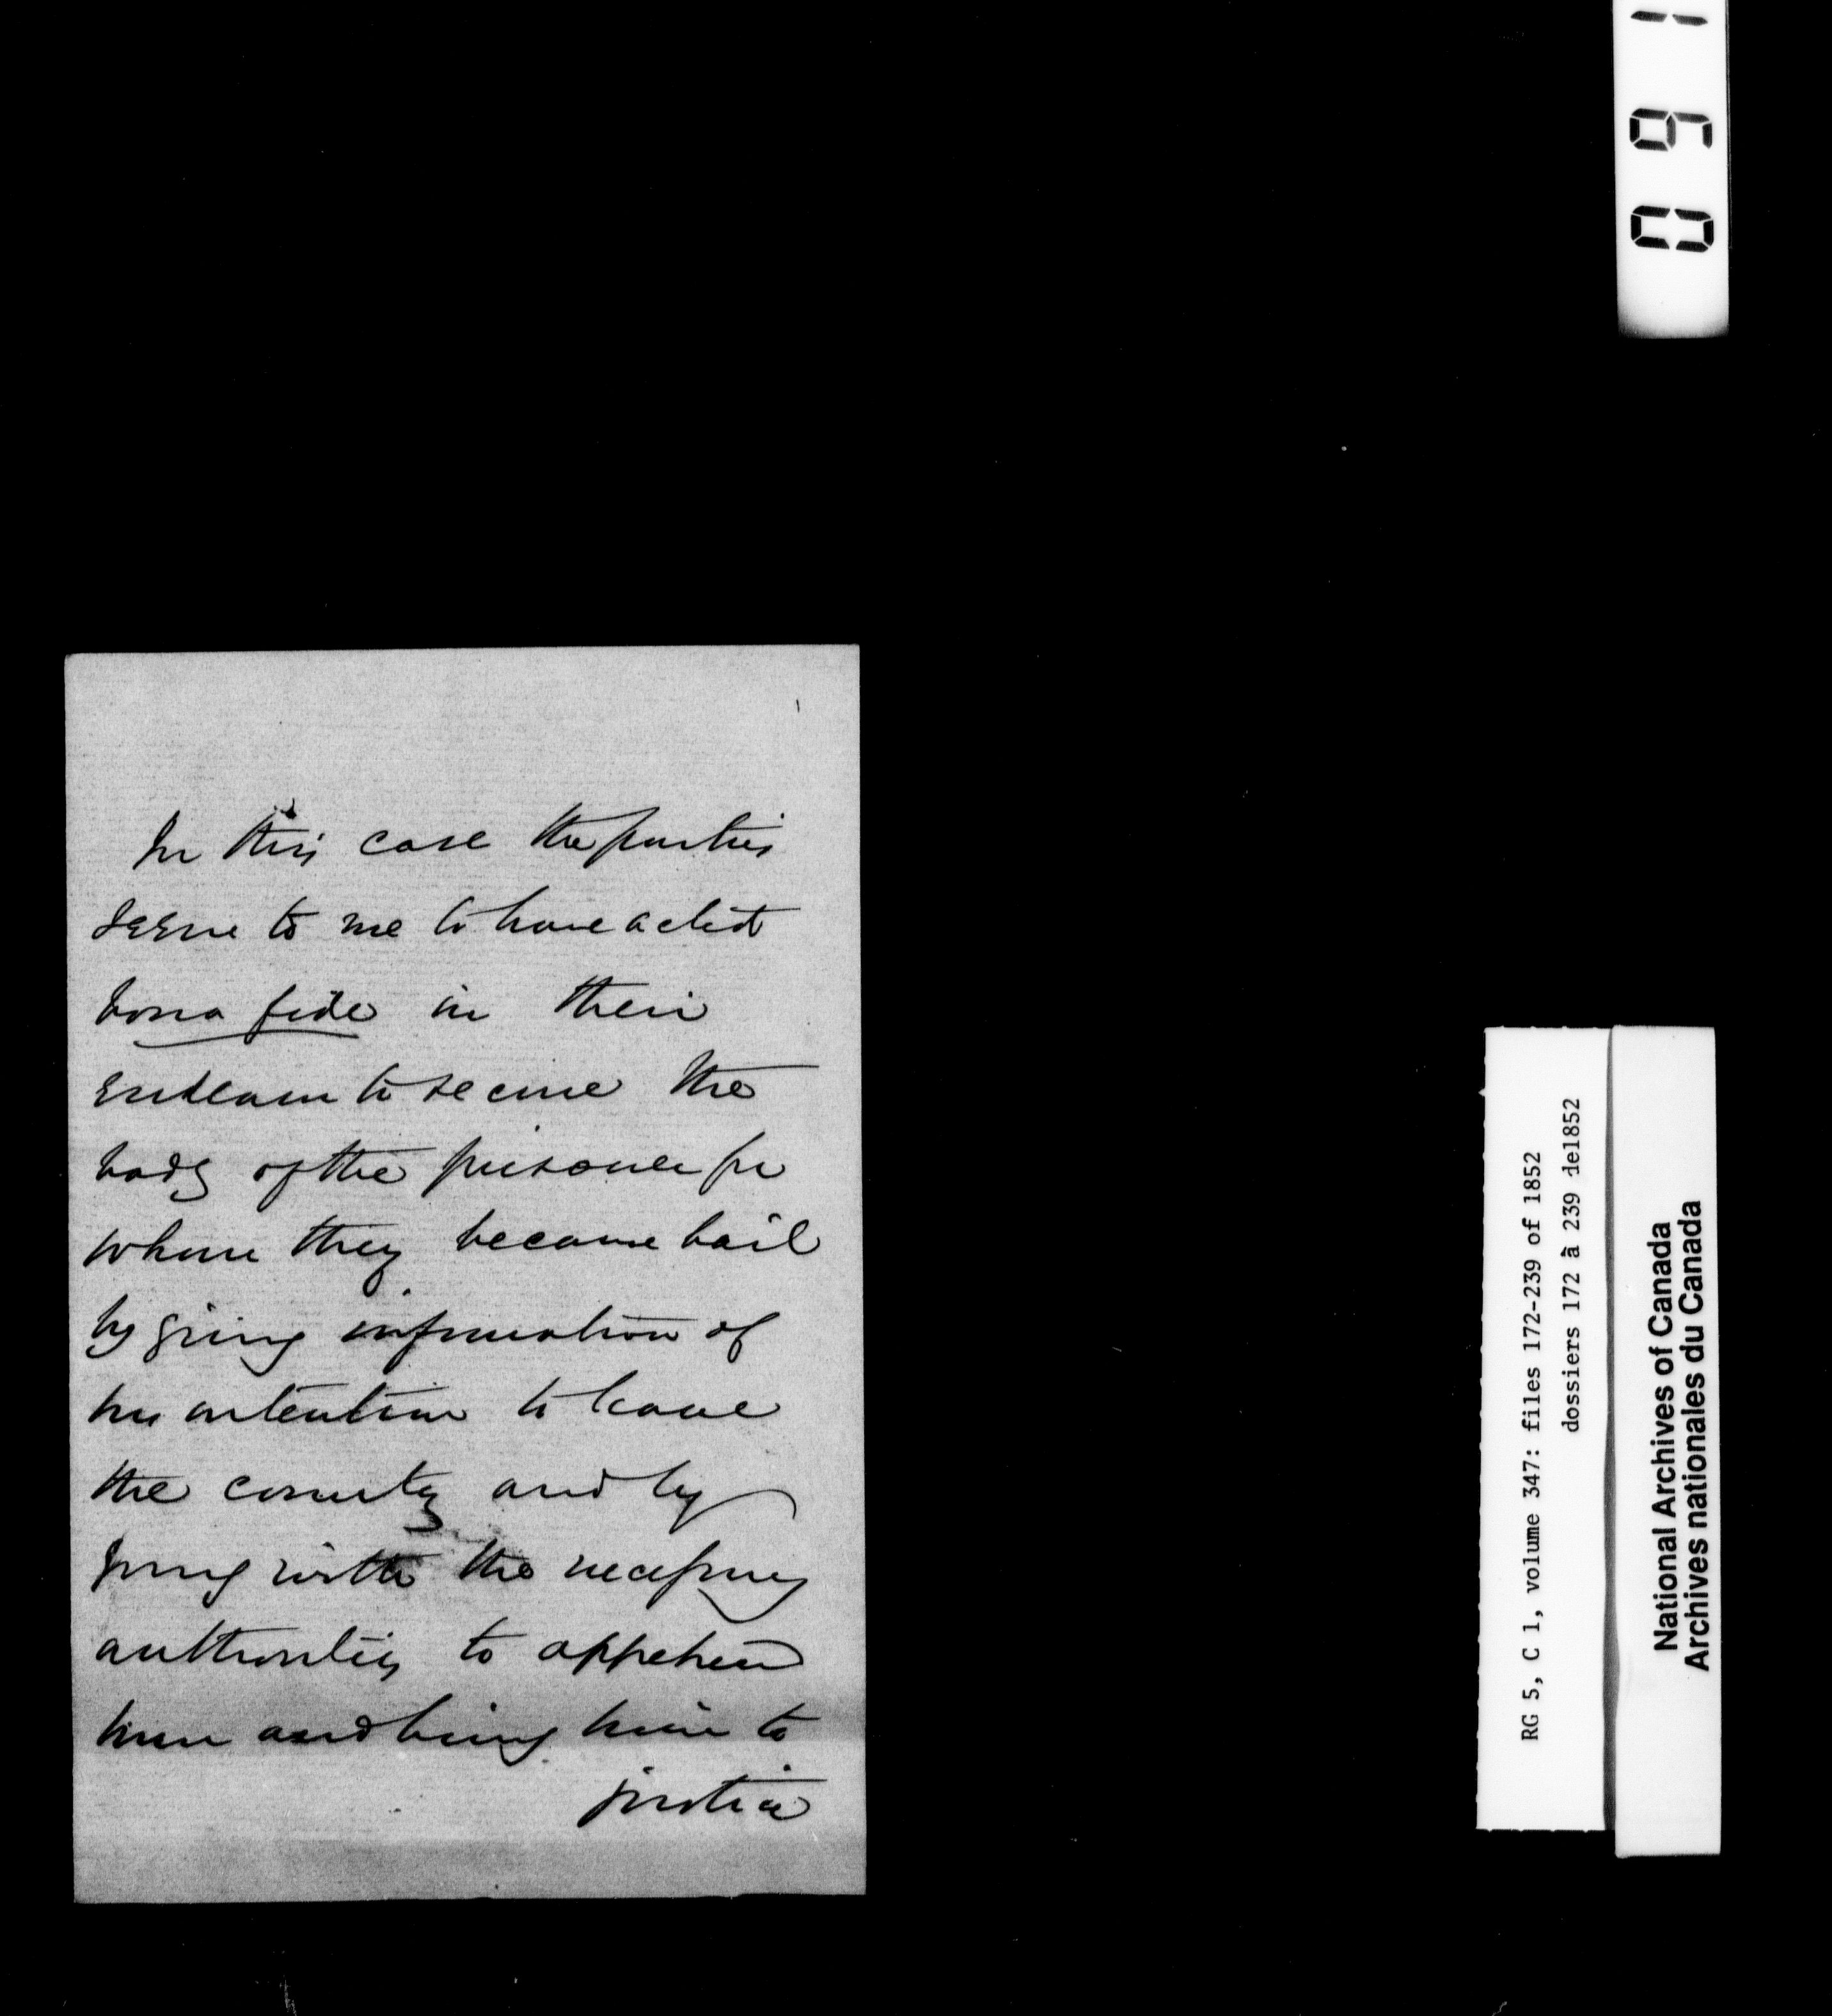 In this case the parties
seem to me to have acted
bona fide in their
endeavour to secure the
body of the prisoner for
whom they became bail
by giving information of
his intention to leave
the country and by
going with the necessary
authorities to apprehend
him and bring him to
justice
091
RG 5, C 1, volume 347: files 172-239 of 1852
dossiers 172 à 239 de1852
National Archives of Canada
Archives nationales du Canada